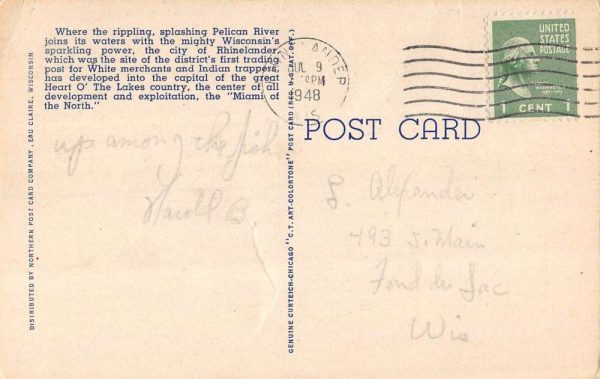 Where the rippling, splashing Pelican River
joins its waters with the mighty Wisconsin's
sparkling power, the city of Rhinelander,
which was the site of the district's first trading
post for White merchants and Indian trappers,
has developed into the capital of the great
Heart O' The Lakes country, the center of all
development and exploitation, the "Miami of
the North."
up among the fish
Harold B.
DISTRIBUTED BY NORTHERN POST CARD COMPANY, EAU CLAIRE, WISCONSIN
GENUINE CURTEICH-CHICAGO "C.T. ART-COLORTONE" POST CARD (REG. U.S. PAT. OFF.)
LANDER
JUL 9
PM
1948
POST CARD
UNITED
STATES
POSTAGE
WASHINGTON
1 CENT 1
S. Alexander
493 S. Main
Fond du Lac
Wis